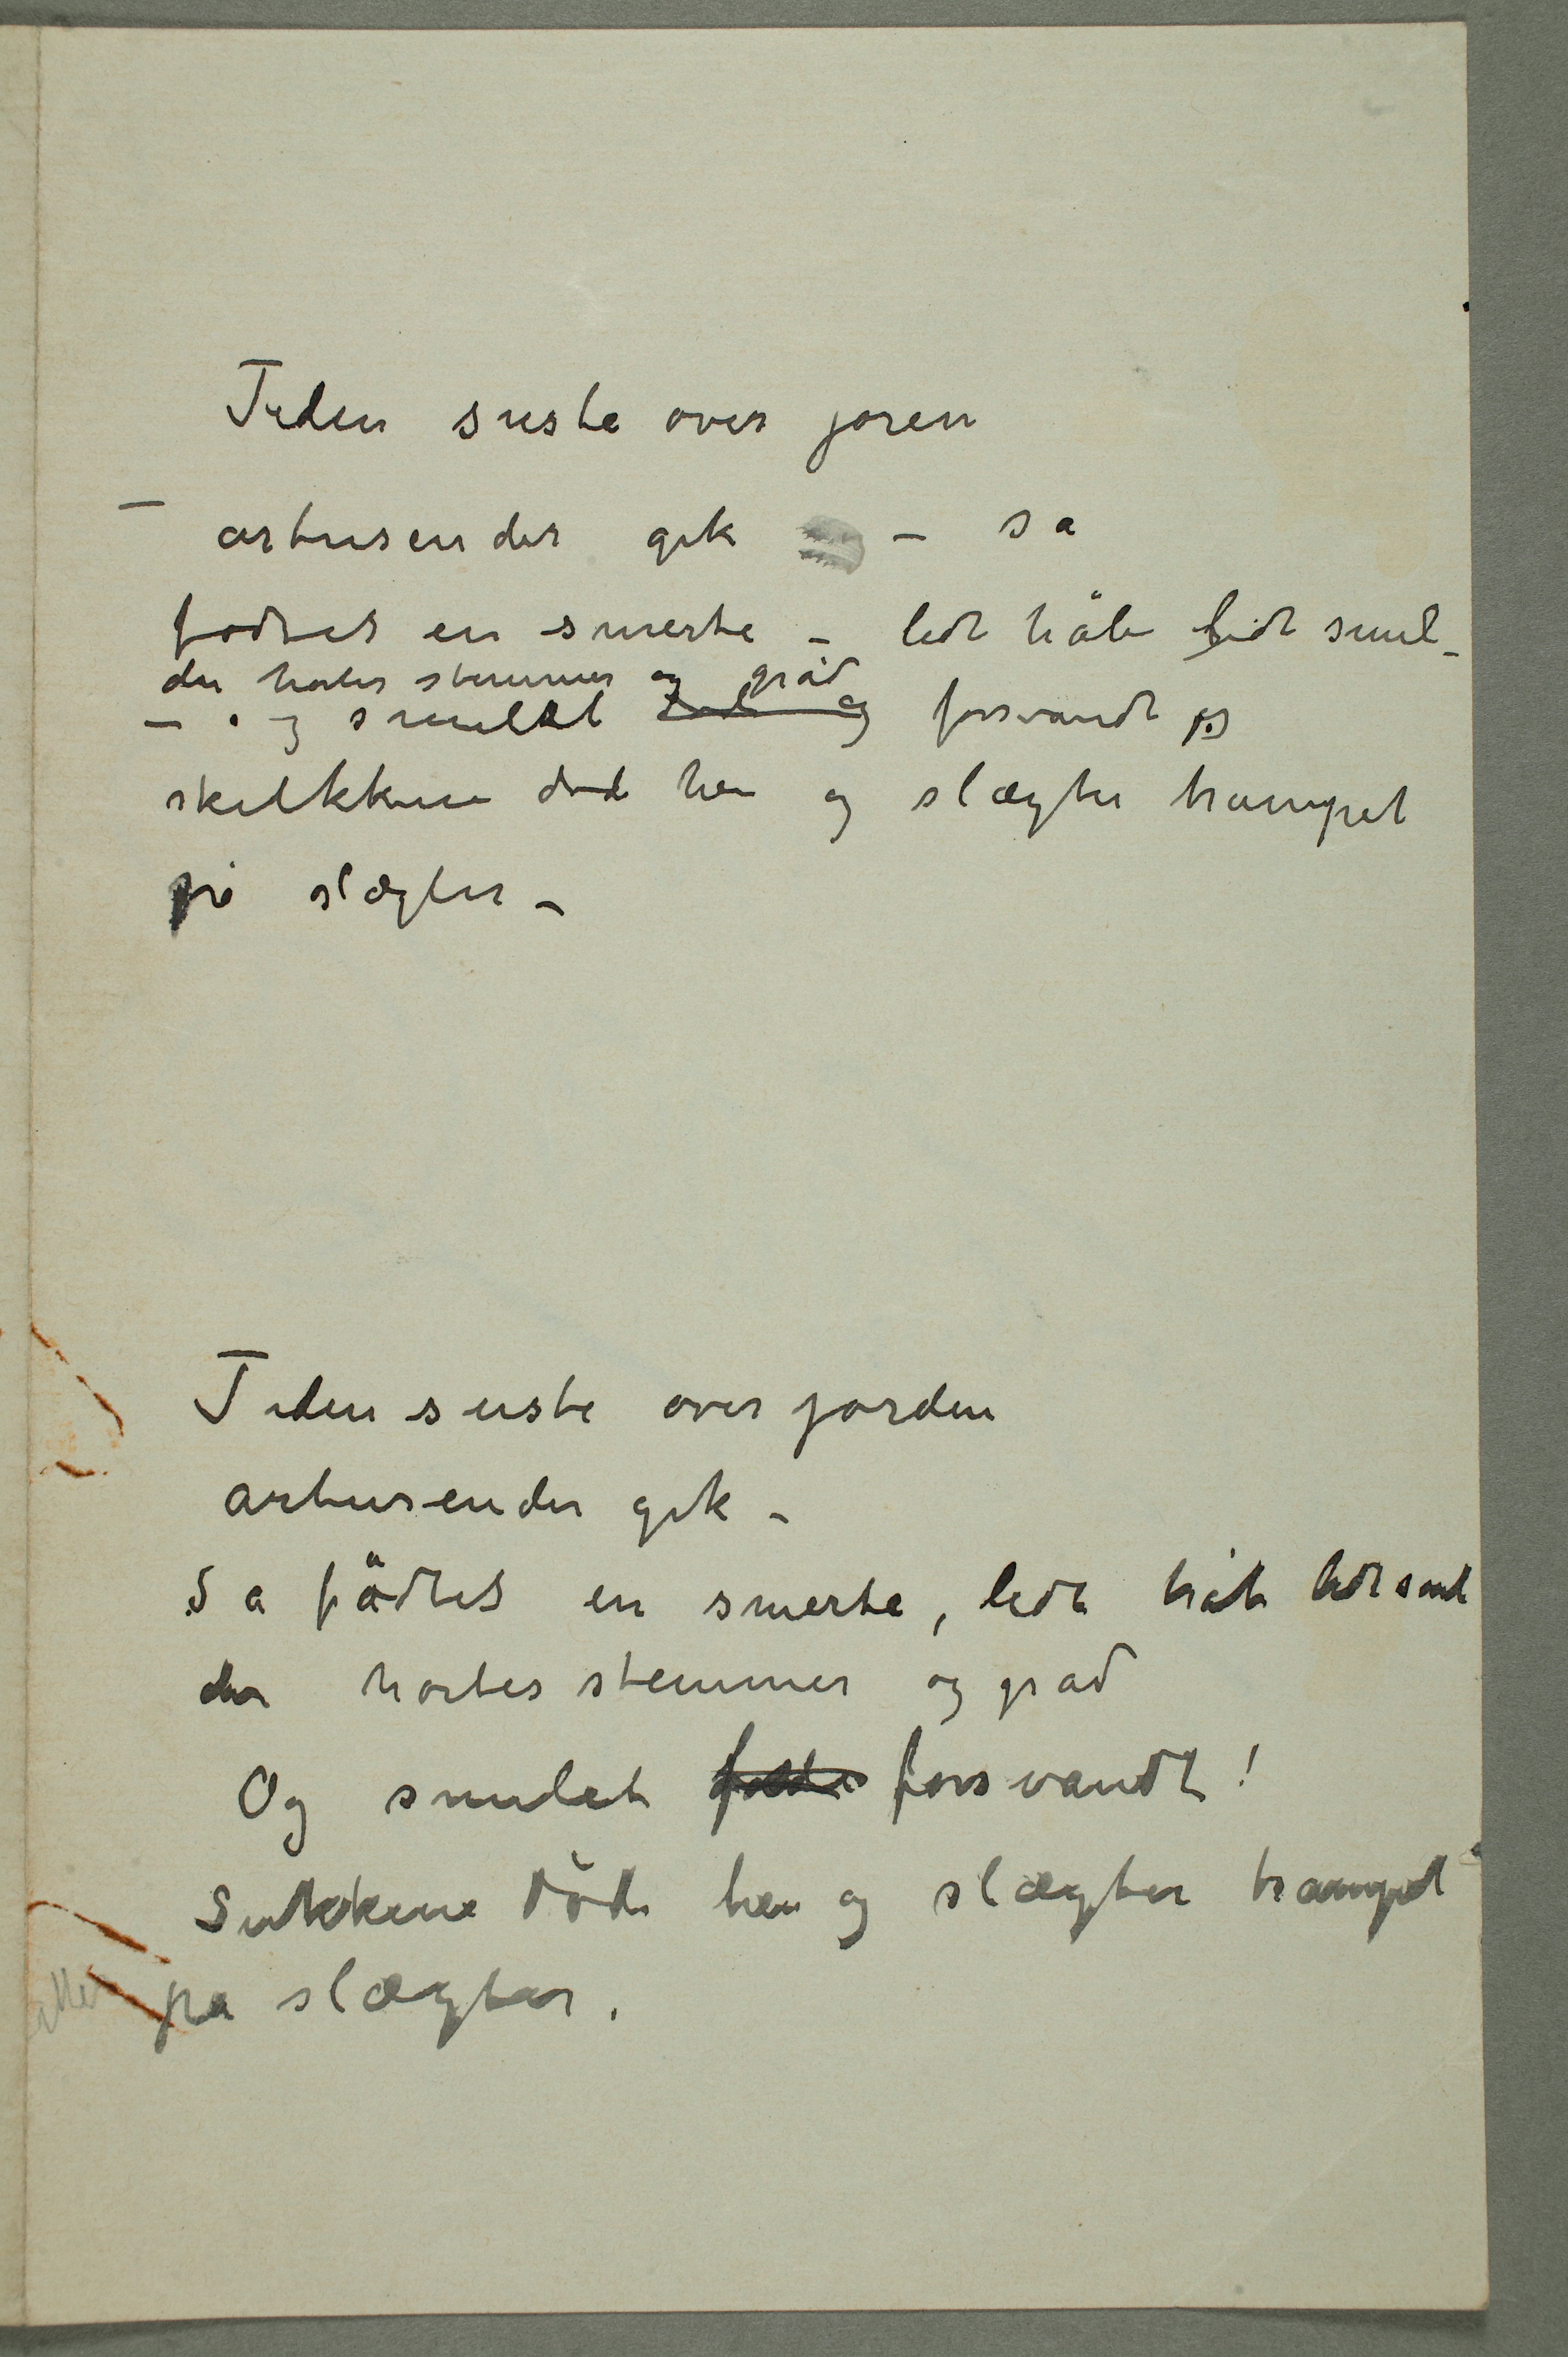 Tiden suste over joren
– artusender gik – sa
fødtes en smerte – lidt håb lidt smil –
der hørtes stemmer og gråd
– og smillet og forsvandt og
skikkkene døde hen og slægter trampet
på slægter –
Tiden suste over jorden
artusender gik –
Sa födtes en smerte, lidt håb lidt smil
der hørtes stemmer og grad
Og smilet forsvandt!
Sukkene döde hen og slægter trampet
pa slægter.